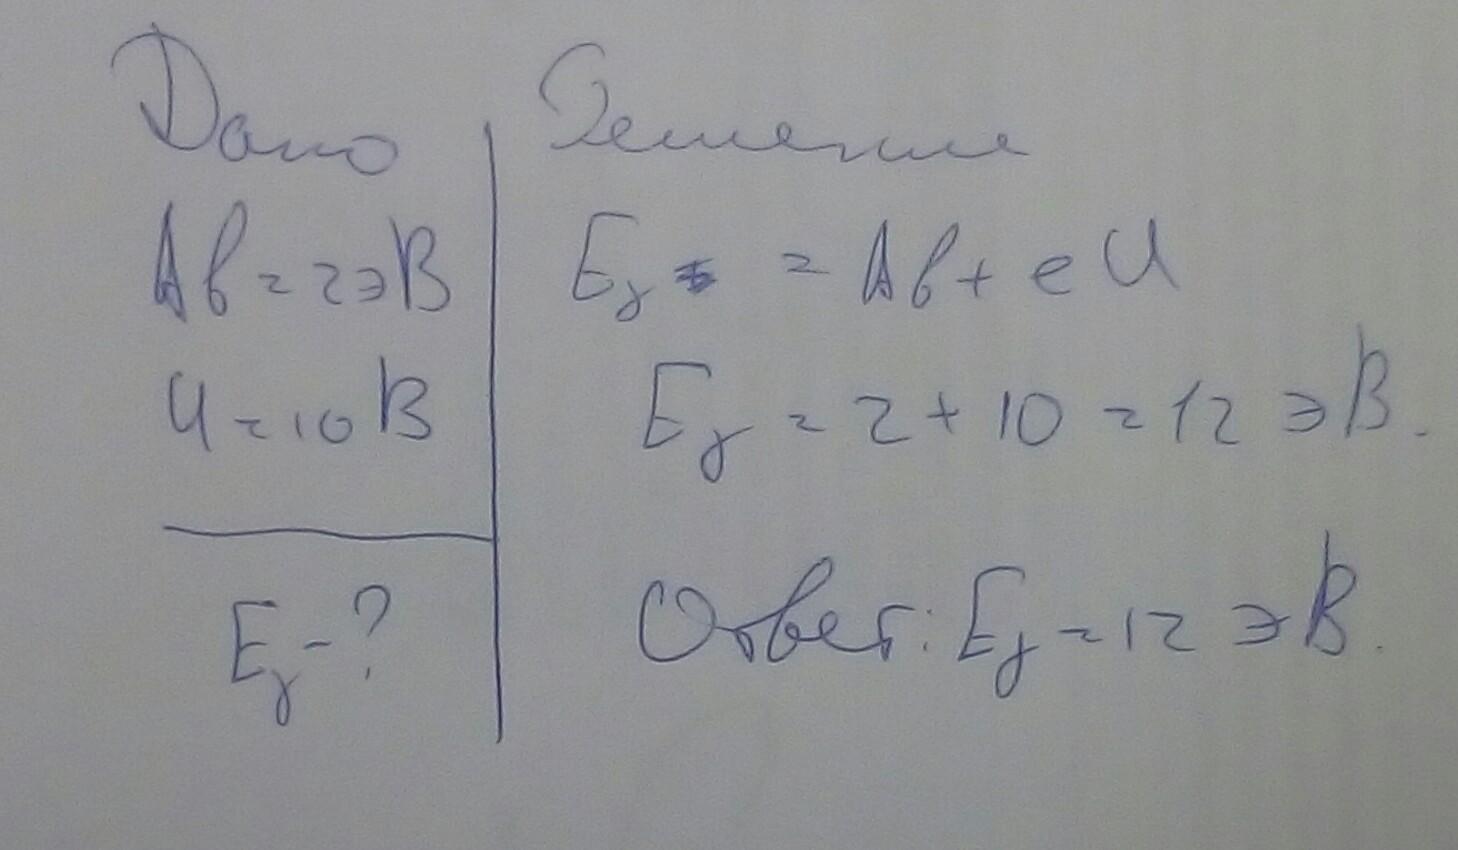 Дано
Aв = 2эВ
U = 10 В
Eγ - ?
Решение
Eγ = Aв + eU
Eγ = 2 + 10 = 12 эВ.
Ответ: Eγ = 12 эВ.